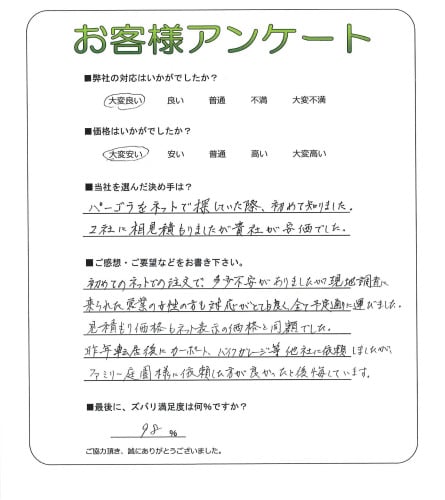 お客様アンケート
■弊社の対応はいかがでしたか？
大変良い 良い 普通 不満 大変不満
■価格はいかがでしたか？
大変安い 安い 普通 高い 大変高い
■当社を選んだ決め手は？
パーゴラをネットで探していた際、初めて知りました。
2社に相見積もりましたが貴社が安価でした。
■ご感想・ご要望などをお書き下さい。
初めてのネットでの注文で、多少不安がありましたが現地調査に
来られた営業の女性の方も対応がとても良く、全て予定通りに運びました。
見積もり価格もネット表示の価格と同額でした。
昨年転居後にカーポート、バイクガレージ等他社に依頼しましたが、
ファミリー庭園様に依頼した方が良かったと後悔しています。
■最後に、ズバリ満足度は何％ですか？
98 ％
ご協力頂き、誠にありがとうございました。